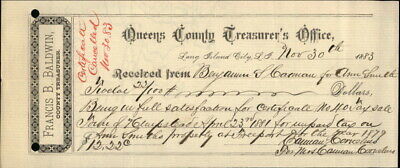 FRANCIS B. BALDWIN,
COUNTY TREASURER.
Certificate
Cancelled
Nov 30. 83
Queens County Treasurer's Office,
Long Island City, L. I. Nov 30th 1883
Received from Benjamin S. for Ann Smith
Twelve 22/100 Dollars,
Being in full satisfaction for Certificate No sale
Town of Hempstead April 23rd 1881 for unpaid taxes on
Ann Smiths property at Freeport for the Year 1879
$12.22